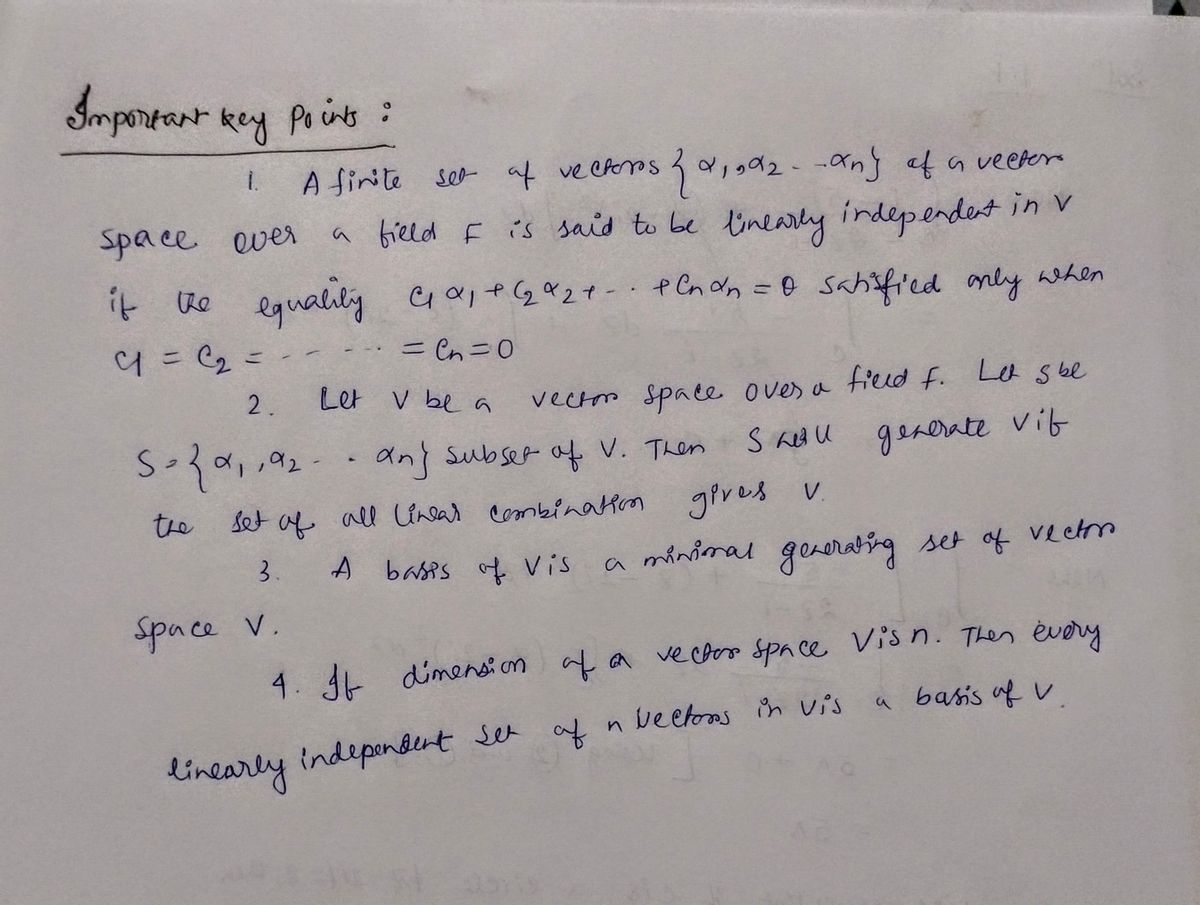 Important key Points :
1. A finite set of vectors { α₁, α₂ - - αn} of a vector
space over a field F is said to be linearly independent in V
if the equality C₁α₁ + C₂α₂ + - . + Cnαn = θ satisfied only when
C₁ = C₂ = - - - - ... = Cn = 0
2. Let V be a vector space over a field F. Let S be
S = { α₁, α₂ - . αn} subset of V. Then S generate V if
the set of all linear combination gives V.
3. A basis of V is a minimal generating set of vector
space V.
4. If dimension of a vector space V is n. Then every
linearly independent set of n vectors in V is a basis of V.